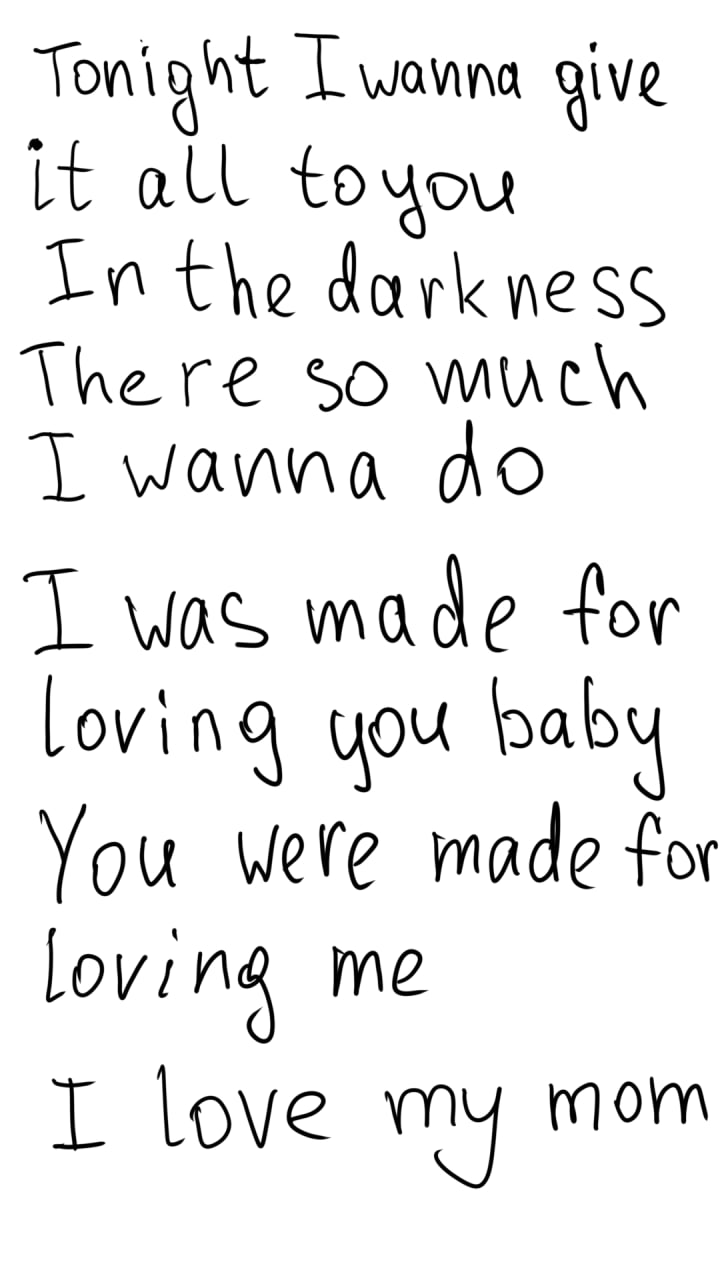 Tonight I wanna give
it all to you
In the darkness
There so much
I wanna do
I was made for
loving you baby
You were made for
loving me
I love my mom